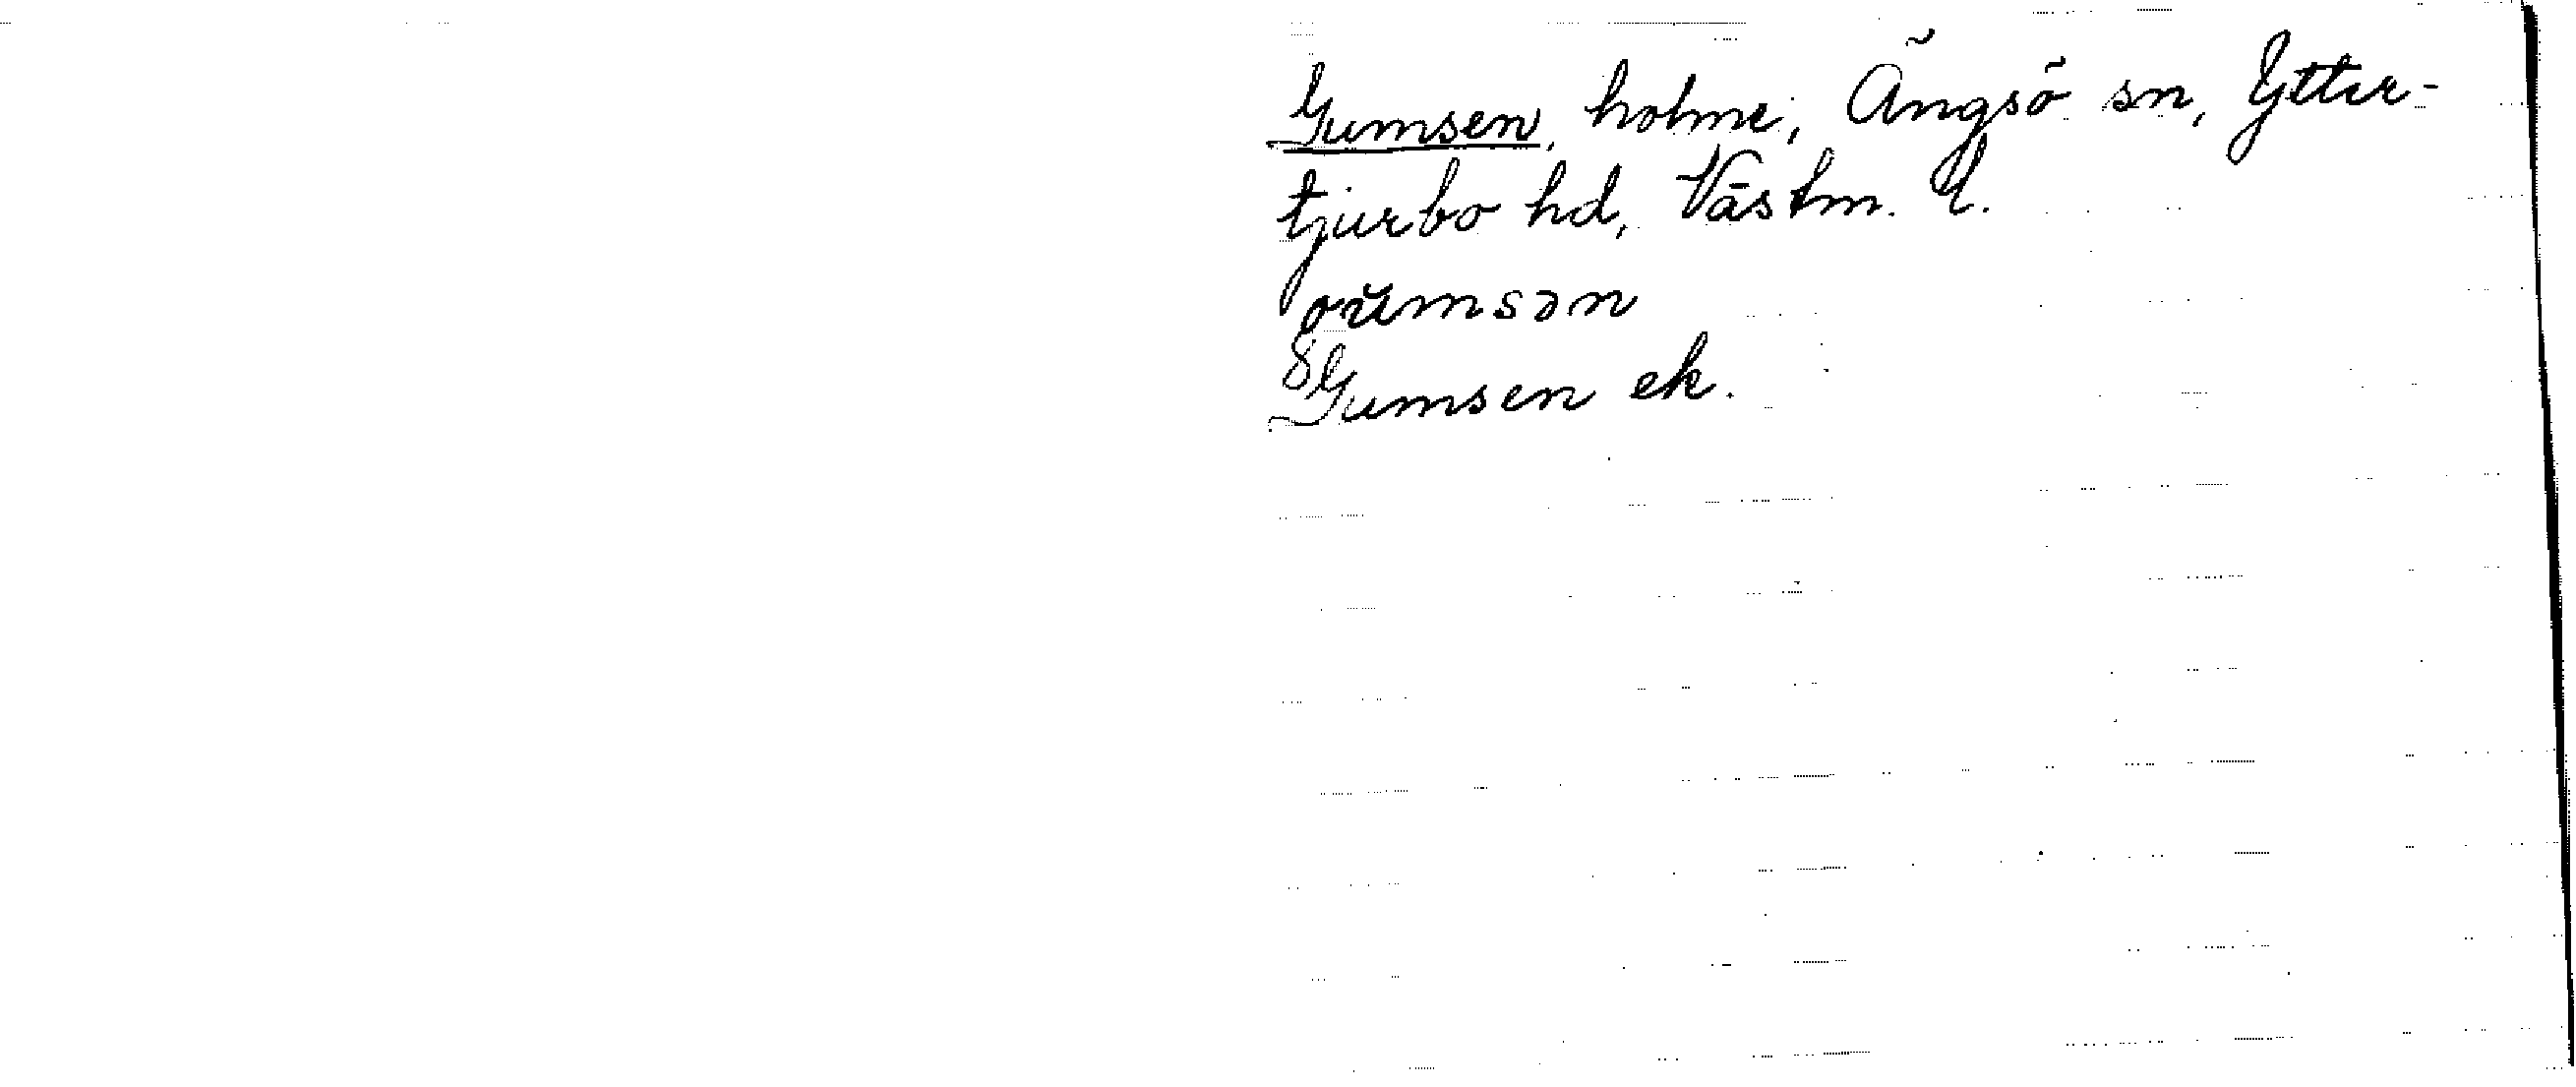 Gumsen, holme, Ängsö sn, Ytter-
tjurbo hd, Västm. l.
gŭmsən
Gumsen ek.